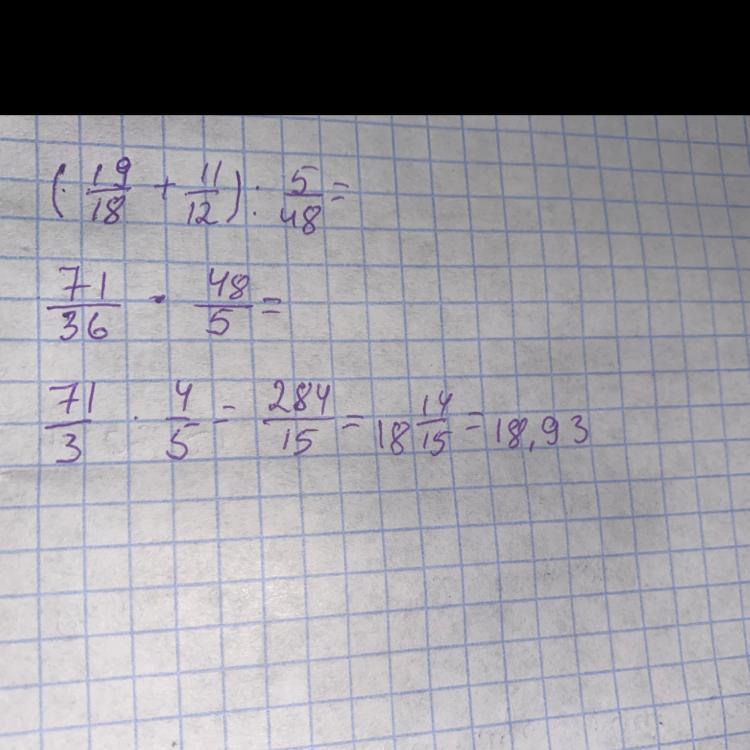 (19/18 + 11/12) : 5/48 =
71/36 · 48/5 =
71/3 · 4/5 = 284/15 = 18 14/15 = 18,93